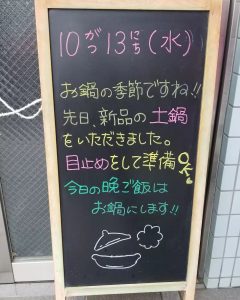 10がつ13にち(水)
お鍋の季節ですね!!
先日、新品の土鍋
をいただきました。
目止めをして準備OK!
今日の晩ご飯は
お鍋にします!!